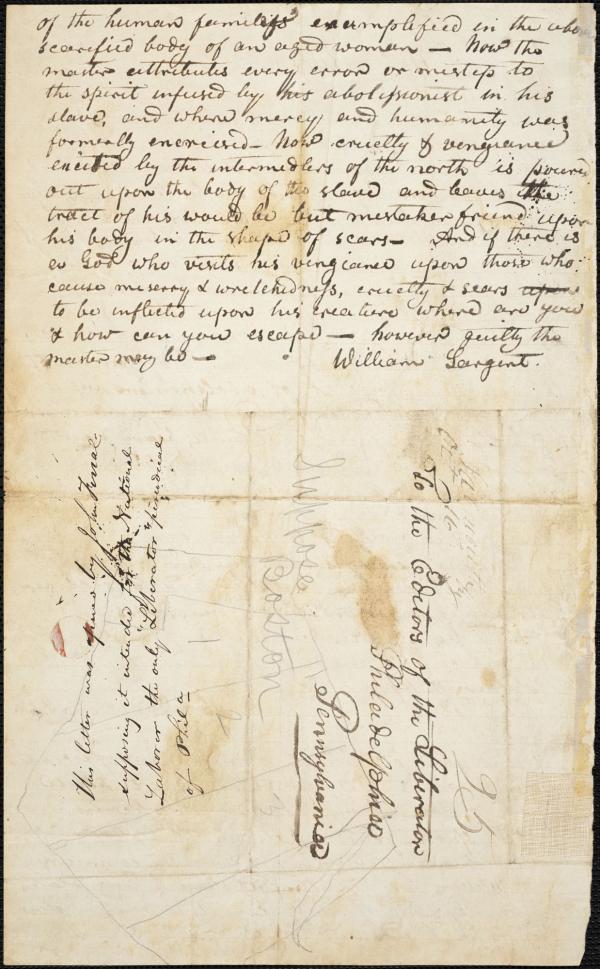 of the human families exumplified in the
scarified body of an aged woman — Now the
master attributes every error or mistep to
the spirit infused by his abolissionist in his
slave, and where mercy and humanity was
formerly exercised — Now cruelty & vengiance
excited by the intermedlers of the north is poured
out upon the body of the slave and leaves the
tract of his would be but mistaken friend upon
his body in the shape of scars — And if there is
a God who visits his vengiance upon those who
cause miserry & wretchidness, cruelty & scars upon
to be inflicted upon his creature where are you
& how can you escape — however guilty the
master may be —
William Sargent.
This letter was opened by John Ferral
supposing it intended for the National
Laborer the only "Liberator" periodical
of Phila
Suppose
Boston
To the Editors of the Liberator
Philadelphia
Pennsylvania
25